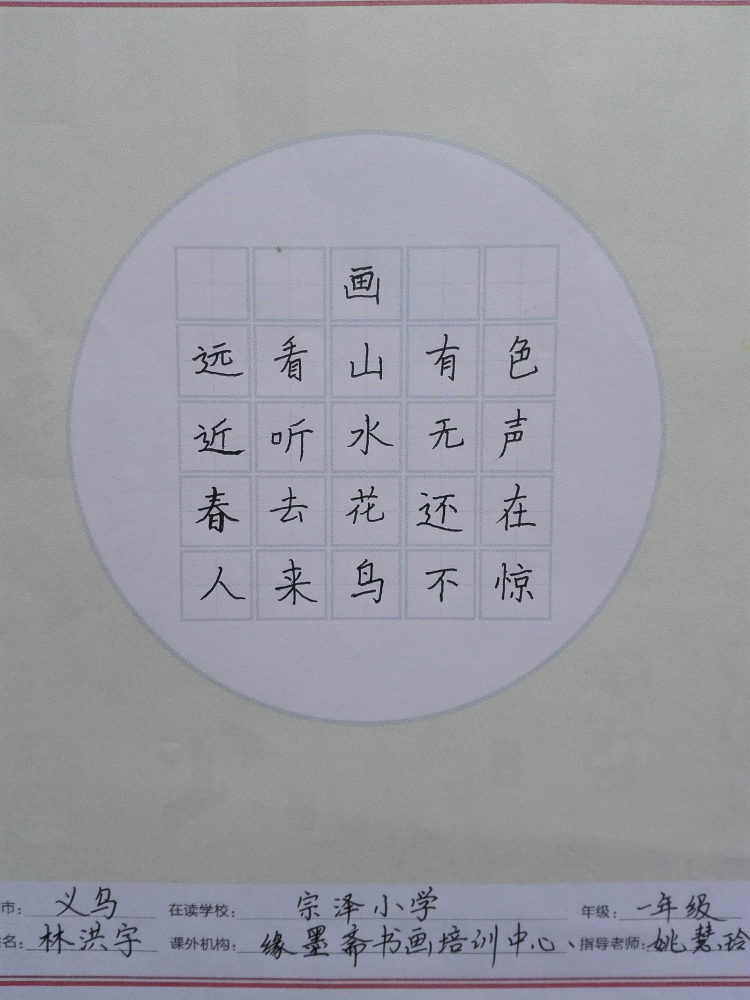 画
远看山有色
近听水无声
春去花还在
人来鸟不惊
市: 义乌 在读学校: 宗泽小学 年级: 一年级
名: 林洪宇 课外机构: 缘墨斋书画培训中心、指导老师: 姚慧玲